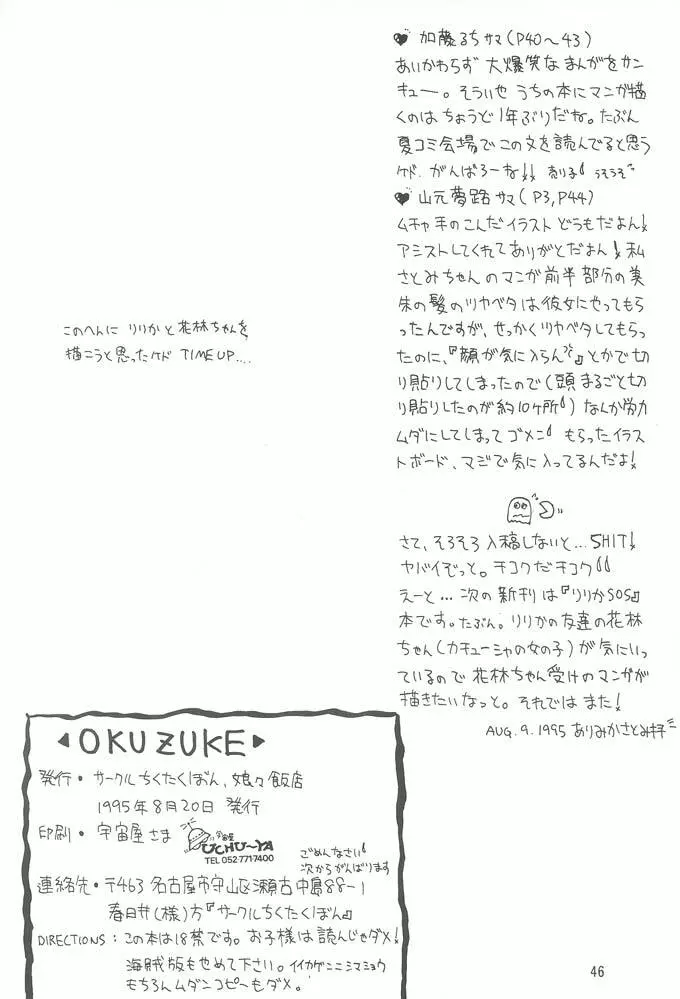 ♥ 加藤るちサマ(P40〜43)
あいかわらず 大爆笑な まんがを サン
キュー。そういや うちの本にマンガ描
くのは ちょうど 1年ぶりだね。たぶん
夏コミ会場で この文を読んでると思う
ケド、がんばろーね!! 売り子 うそうそ
♥ 山元夢路サマ(P3,P44)
ムチャ手のこんだイラスト どうもだよん!
アシストしてくれてありがとだよん! 私
さとみちゃんのマンガ前半部分の美
朱の髪のツヤベタは彼女にやってもら
ったんですが、せっかくツヤベタしてもらっ
たのに、『顔が気に入らん』とかで切
り貼りしてしまったので(頭まるごと切
り貼りしたのが約10ヶ所)なんか労力
ムダにしてしまってゴメンニ もらったイラス
トボード、マジで気に入ってるんだよ!
さて、そろそろ入稿しないと…SHIT!
ヤバイぞっと。チコクだチコク
えーと…次の新刊は『りりかSOS』
本です。たぶん。りりかの友達の花林
ちゃん(カチューシャの女の子)が気にいっ
ているので 花林ちゃん受けのマンガが
描きたいなっと。それでは また!
AUG.9.1995 ありみかさとみ
このへんに りりかと花林ちゃんを
描こうと思ったケド TIME UP....
◀OKUZUKE▶
発行・サークルちくたくぼん、娘々飯店
1995年8月20日 発行
印刷・宇宙屋さま
宇宙屋
UCHU〜YA
TEL 052-771-7400
ごめんなさい
次からがんばります
連絡先・〒463 名古屋市守山区瀬古中島88-1
春日井(様)方『サークルちくたくぼん』
DIRECTIONS:この本は18禁です。お子様は読んじゃダメ!
海賊版もやめて下さい。イイカゲンニシマショウ
もちろんムダンコピーもダメ。
46